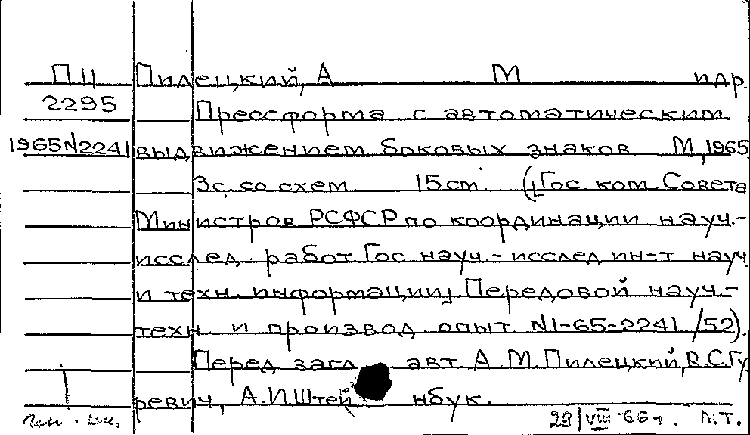 ПЦ Пилецкий, А М и др.
2295 Прессформа с автоматическим
1965N2241 выдвижением боковых знаков М, 1965
3с. со схем 15см. (Гос ком Совета
Министров РСФСР по координации науч.-
исслед. работ Гос науч.-исслед ин-т науч
и техн. информации Передовой науч.-
техн. и производ. опыт N1-65-2241/52).
Перед загл. авт А.М.Пилецкий, В.С.Гу
ревич, А.И.Штейнбук.
28/VIII 66г. Л.Т.